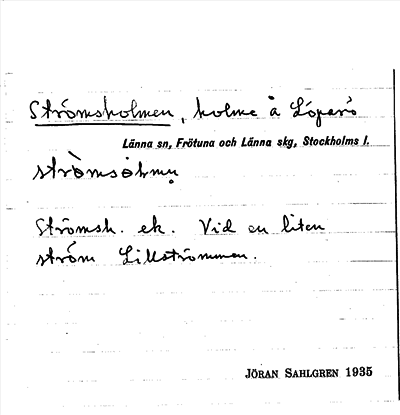 Strömsholmen, holme å Löparö
Länna sn, Frötuna och Länna skg, Stockholms l.
Strömsh. ek. Vid en liten
ström Lillströmmen.
JÖRAN SAHLGREN 1935